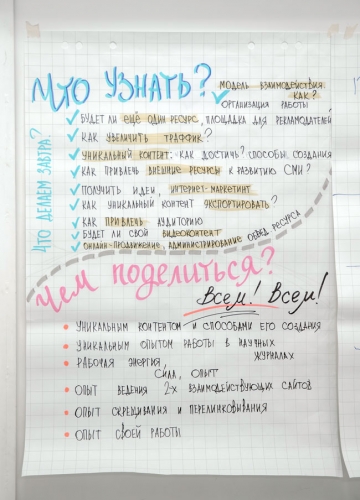 Что узнать?
модель взаимодействия
как?
организация работы
будет ли ещё один ресурс, площадка для рекламодателей
как увеличить траффик?
уникальный контент: как достичь? способы создания
как привлечь внешние ресурсы к развитию СМИ?
получить идеи, интернет-маркетинг
как уникальный контент экспортировать?
как привлечь аудиторию
будет ли свой видеоконтент
онлайн-продвижение, администрирование ресурса
Что делаем завтра?
обед
Чем поделиться?
Всем! Всем!
уникальным контентом и способами его создания
уникальным опытом работы в научных
журналах
рабочая энергия,
сила, опыт
опыт ведения 2-х взаимодействующих сайтов
опыт скрещивания и перелинковывания
опыт своей работы